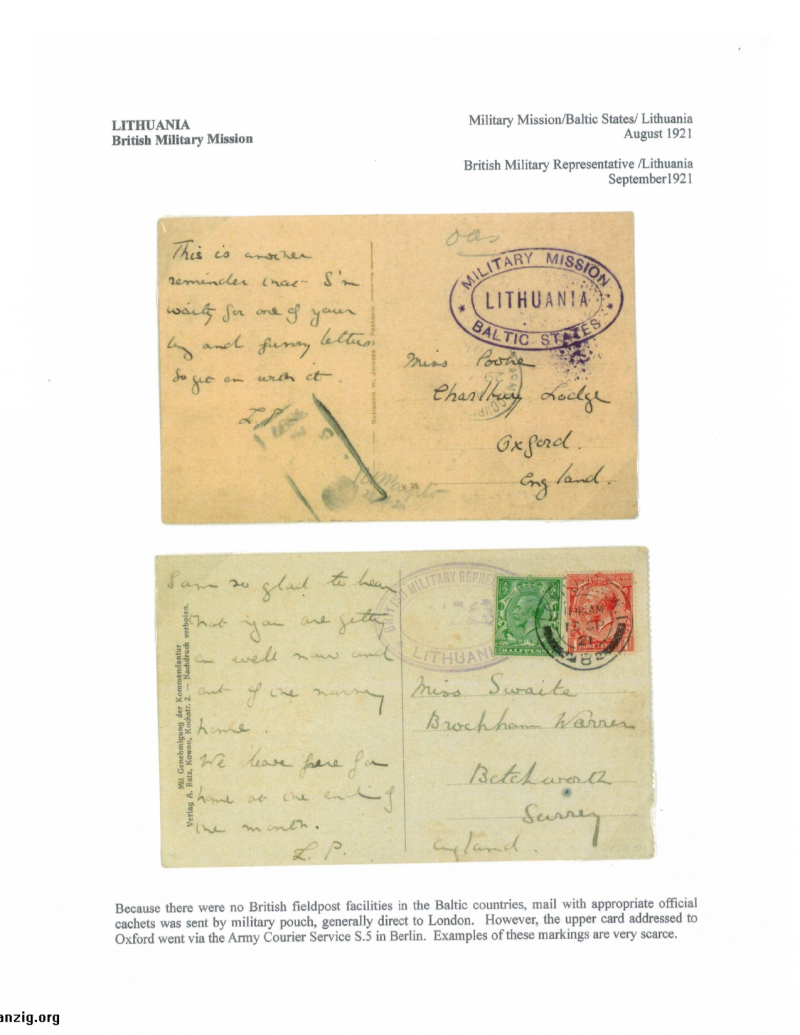 LITHUANIA
British Military Mission
Military Mission/Baltic States/ Lithuania
August 1921
British Military Representative /Lithuania
September1921
This is another
reminder that I'm
waitg for one of your
long and funny letters
So get on with it.
L.P.
oas
MILITARY MISSION
LITHUANIA
BALTIC STATES
Miss Poole
Charlbury Lodge
Oxford.
England.
I am so glad to hear
that you are gettg
on well now and
out of the nursing
home.
We leave here for
home at the end of
the month.
L. P.
Mit Genehmigung der Kommandantur
Verlag A. Batz, Kowno, Kochstr. 2. — Nachdruck verboten.
BRITISH MILITARY REPRE
LITHUANI
HALFPENN
11 45 AM
13 SP
21
Miss Swaite
Brockham Warren
Betchworth
Surrey
England.
Because there were no British fieldpost facilities in the Baltic countries, mail with appropriate official
cachets was sent by military pouch, generally direct to London. However, the upper card addressed to
Oxford went via the Army Courier Service S.5 in Berlin. Examples of these markings are very scarce.
anzig.org